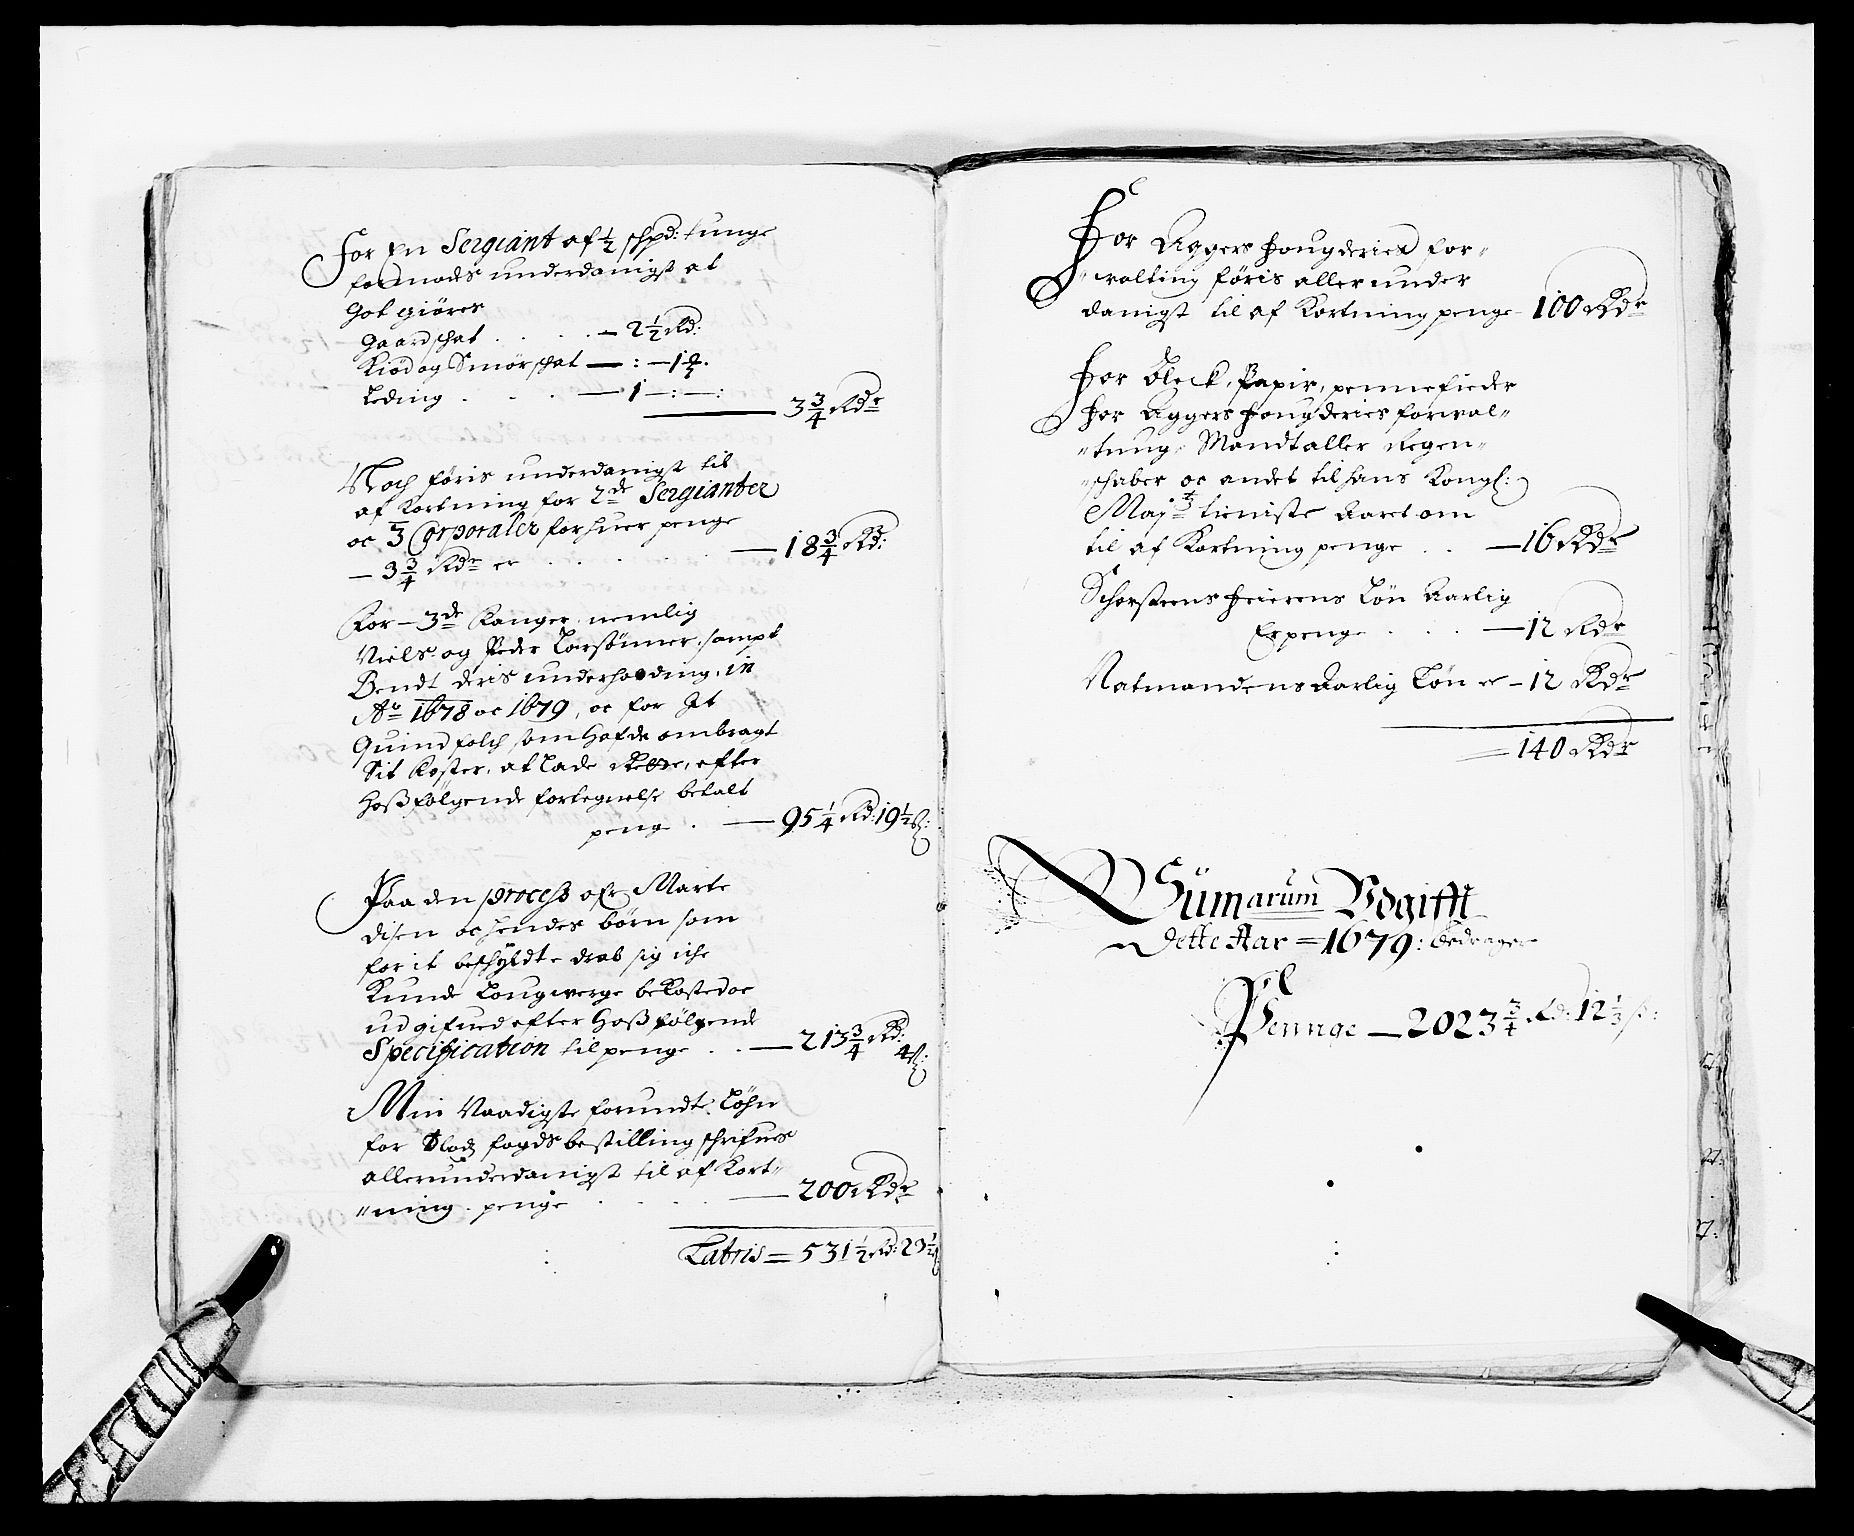 For En Sergiant af ½ schpd: tunge
formodis underdanigst at
Got giøres
Gaardschat . . . . — 2½ Rd:
Kiød og Smørschat — : — 1
Leding . . . — 1 —:—:
3¾ Rdr
Noch føris underdanigst til
af Kortning for 2de Sergianter
oc 3 Corporaler for huer penge
— 3¾ Rdr er . . . . — 18¾ Rd:
For — 3de Fanger, nemlig
Niels og Peder Larsønner, sampt
Bendt deris underholding, in
Ao 1678 oc 1679, oc for Et
Quindfolch som Hafde ombragt
Sit Foster, at lade Rette, efter
Hosfølgende fortegnelse betalt
penge . — 95¼ Rd: 19½ s:
Paa den process ofr Marte
disen oc hendes børn som
for it beschyldte drab sig iche
Kunde Lougwerge bekosted oc
udgifued efter Hosfølgende
Specification til penge . . — 213¾ Rd:
4 s:
Min Naadigste forundte Løhn
for Slotz fogds bestilling schrifues
allerunderdanigst til af Kort-
-ning penge . . . . — 200 Rdr
Latris = 531½ Rd: 23½ s:
For Aggers Fougderies for-
-valting føris allerunder
danigst til af Kortning penge — 100 Rdr
For Bleck, Papir, pennefieder
for Aggers Fougderies forwal-
-tning, Mandtaller Regen-
-schaber oc andet til Hans Kongl:
Majts tieniste Aaret om
til af Kortning penge . . — 16 Rdr
Schorsteens Feierens Løn Aarlig
Er penge . . . — 12 Rdr
Natmandens Aarlig Løn er — 12 Rdr
= 140 Rdr
Sümarum Vdgifft
Dette Aar = 1679: bedrager
Pennge — 2023¾ Rd: 12⅓ s: